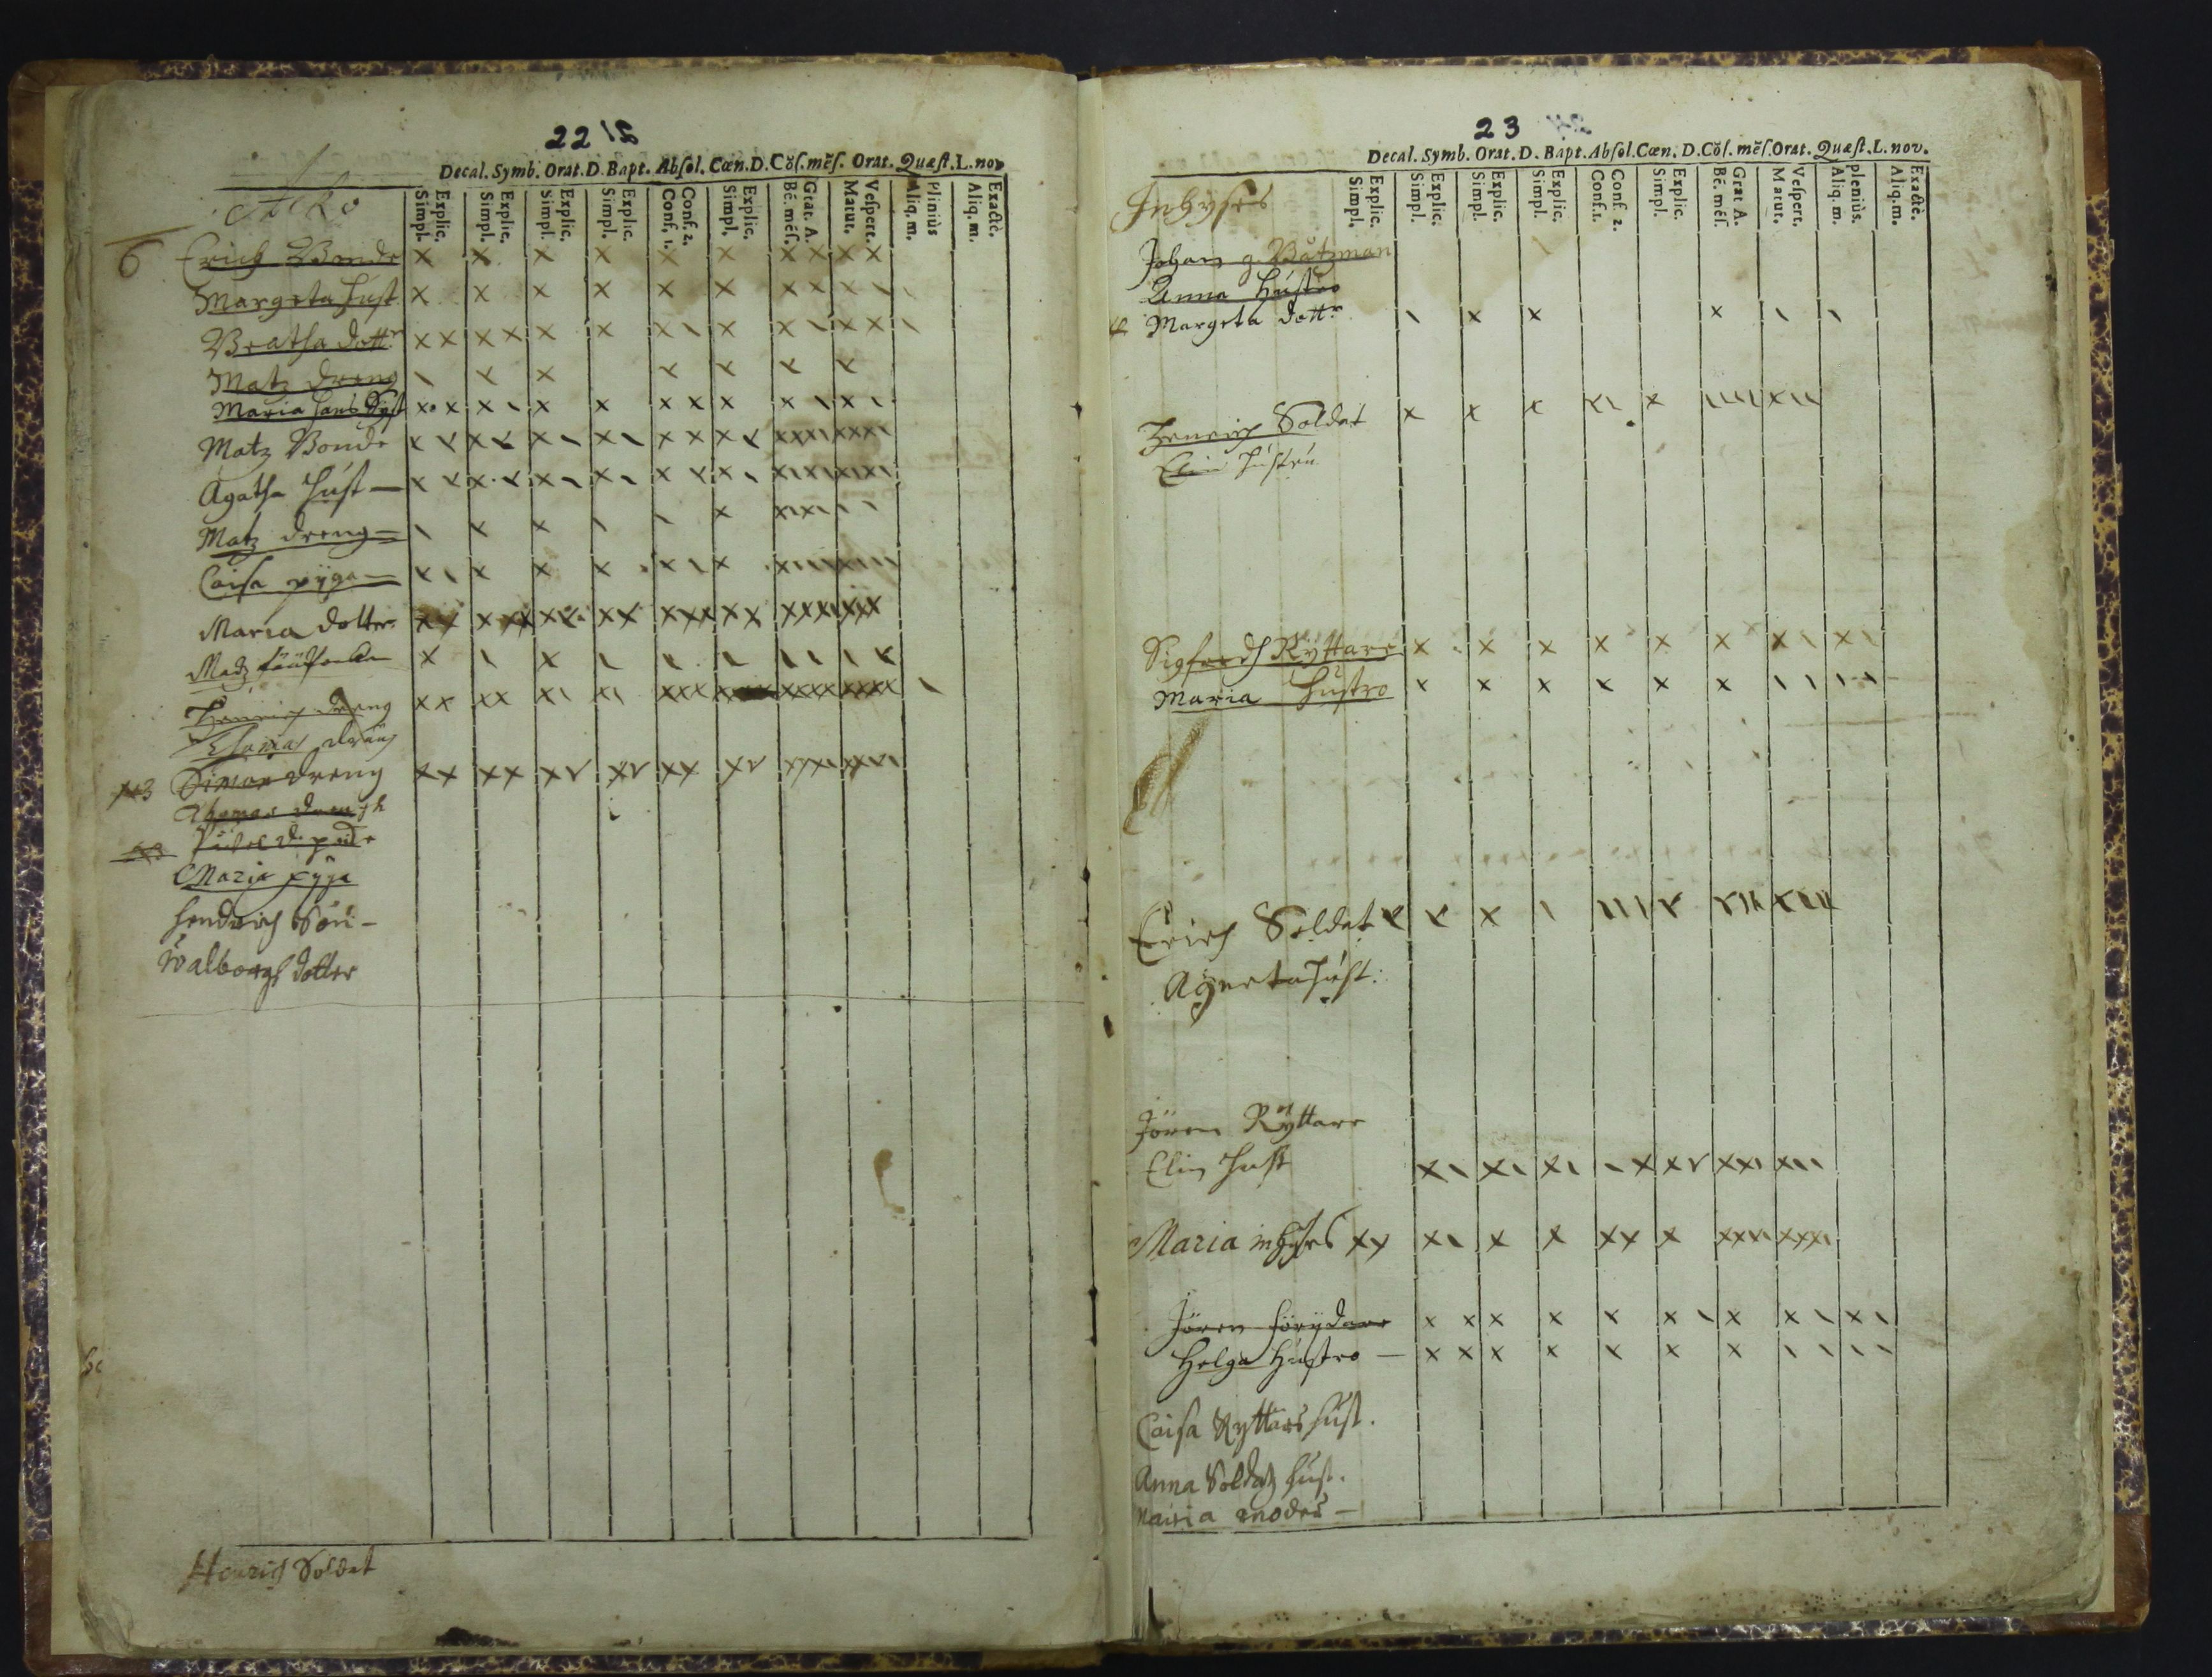 22
Decal. Symb. Orat. D. Bapt. Absol. Cœn. D. Cōſ. mēſ. Orat. Quæſt. L. nov
Explic. Simpl. Explic. Simpl. Explic. Simpl. Explic. Simpl. Conf. 2. Conf. 1. Explic. Simpl. Grat. A. Bé. méſ. Veſpert. Matut. Plinius Aliq. m. Exactè. Aliq. m.
6 Erich Bonde
Margeta Hust
Breatha dottr
Matz dreng
Maria hans Syst
Matz Bonde
Agatha Hust
Matz dreng
Caisa pyga
Maria dotter
Madz
Henrich dreng
Thomas dräng
Simon dreng
Thomas
Maria pyga
Hendrich Son
Walborgh dotter
Henrich Soldat
23
Decal. Symb. Orat. D. Bapt. Absol. Cœn. D. Cōſ. mēſ. Orat. Quæſt. L. nov.
Inhyses
Explic. Simpl. Explic. Simpl. Explic. Simpl. Explic. Simpl. Conf. 2. Conf. 1. Explic. Simpl. Grat A. Bé. méſ. Veſpert. Matut. pleniùs. Aliq. m. Exactè. Aliq. m.
Johan g. Båtzman
Anna Hustro
Margeta dottr
Henrich Soldat
Elin Hustru
Sigfredh Ryttare
Maria Hustro
Erich Soldat
Agneta Hust:
Jören Ryttare
Elin Hust
Maria inhyses
Jören
Helga Hustro
Caisa Ryttars hust.
Anna Soldatz hust.
Maria moder